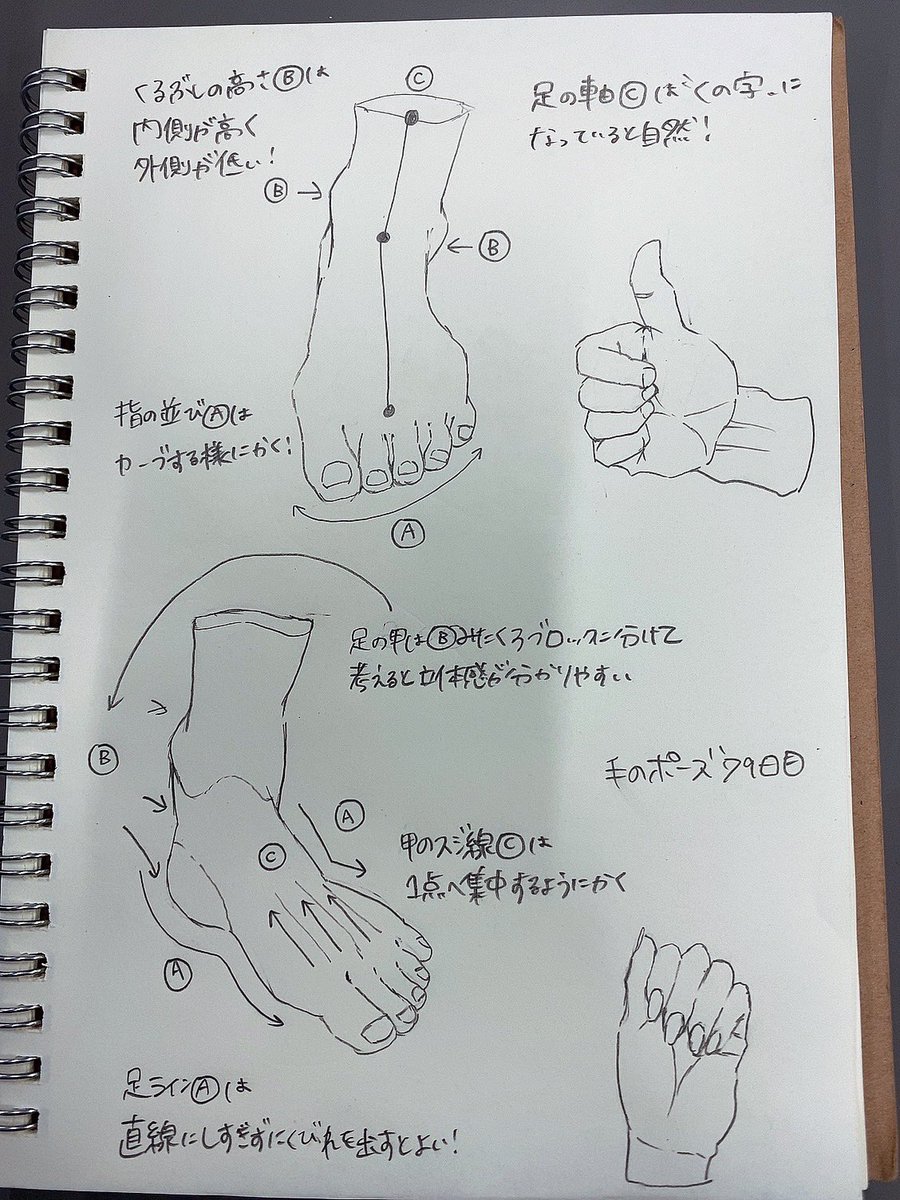 くるぶしの高さⒷは
内側が高く
外側が低い!
Ⓒ
足の軸Ⓒは「くの字」に
なっていると自然!
Ⓑ
Ⓑ
指の並びⒶは
カーブする様にかく!
Ⓐ
足の甲はⒷみたくろブロックに分けて
考えると立体感が分かりやすい
Ⓑ
手のポーズ79日目
Ⓐ
甲のスジ線Ⓒは
1点へ集中するようにかく
Ⓒ
Ⓐ
足ラインⒶは
直線にしすぎずにくびれを出すとよい!